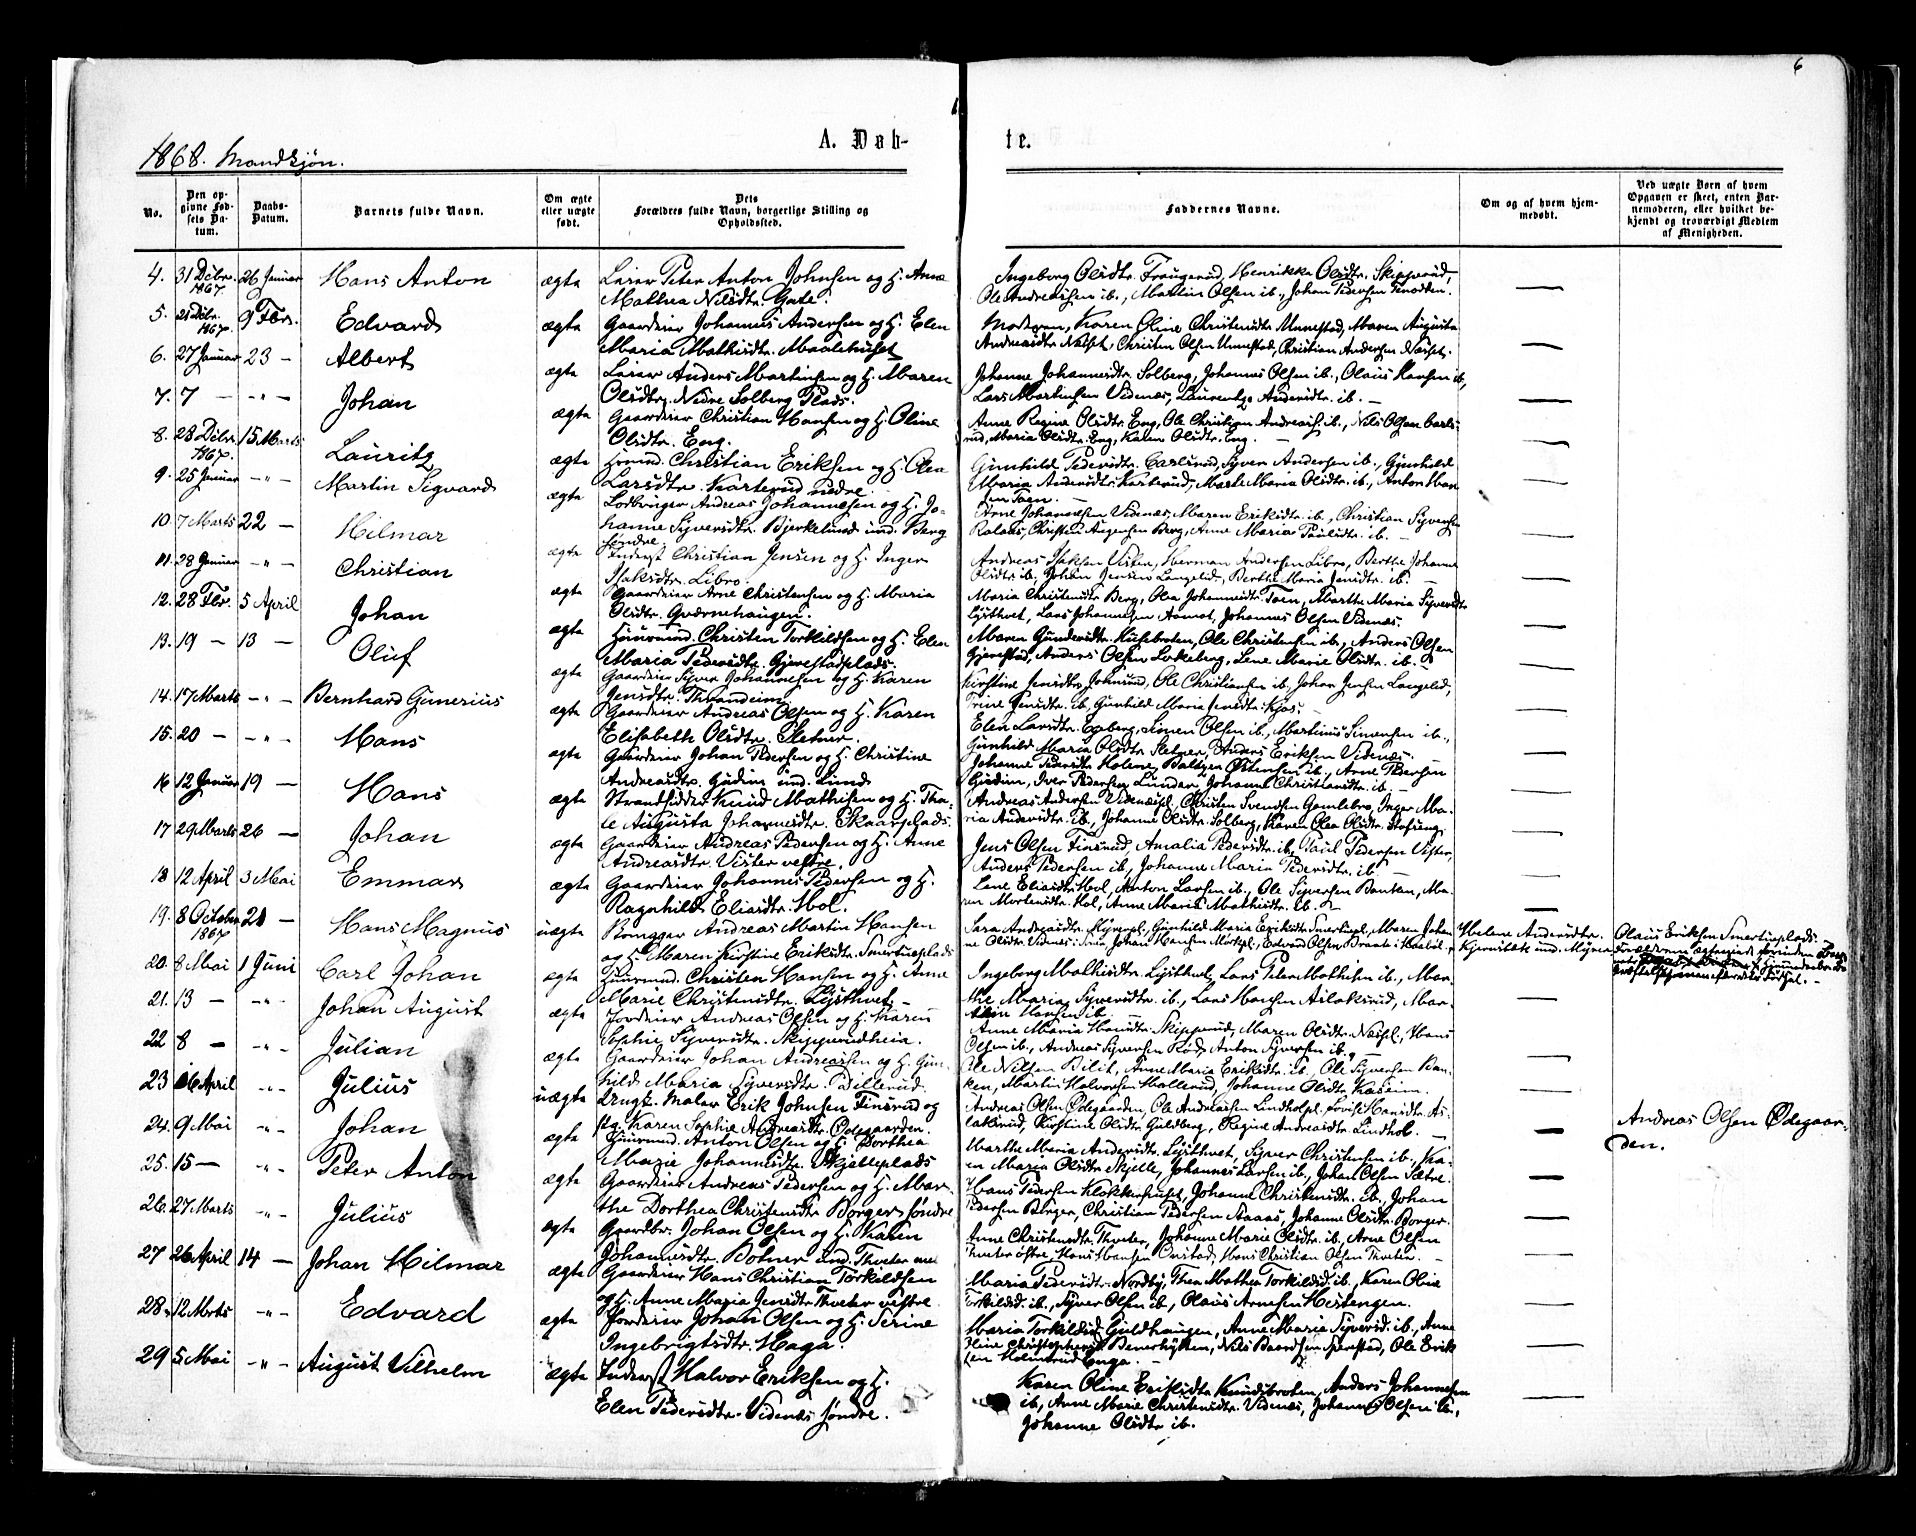 6
1868. Mandkjøn.
A. Døb-
te.
No.
Den op-
givne Fød-
sels Da-
tum.
Daabs-
Datum.
Barnets fulde Navn.
Om ægte
eller uægte
født.
Dets
Forældres fulde Navn, borgerlige Stilling og
Opholdssted.
Faddernes Navne.
Om og af hvem hjem-
medøbt.
Ved uægte Børn af hvem
Opgaven er skeet, enten Bar-
nemoderen, eller hvilket be-
kjendt og troværdigt Medlem
af Menigheden.
4. 31 Debr. 1867. 26 Januar Hans Anton ægte
Leier Peter Anton Johnsen og H. Anne
Mathea Nilsdtr. Gate.
Ingeborg Olsdtr. Fraugerud, Henrikke Olsdtr. Skipperud,
Ole Andreassen ib., Martin Olsen ib., Johan Pedersen
5. 21 Debr. 1867. 9 Fbr. Edvard ægte
Gaardeier Johannes Andersen og H. Elen
Maria Mathisdtr. Maalehuset
Moderen, Karen Oline Christensdtr. Unnestad, Maren Augusta
Andreasdtr. Næset, Christen Olsen Unnestad, Christian Andersen Næset.
6. 27 Januar 23 - Albert ægte
Leier Anders Martinsen og H. Maren
Olsdtr. Nedre Solberg Plads.
Johanne Johannesdtr. Solberg, Johannes Olsen ib., Olaus Hansen ib,
Lars Martinsen Videnæs, Laurentze Andersdtr. ib.
7. 7 - -"- Johan ægte
Gaardeier Christian Hansen og H. Oline
Olsdtr. Eng.
Anne Regine Olsdtr. Eng, Ole Christian Andreass. ib., Nils Olsen Carls-
rud, Maria Olsdtr. Eng, Karen Olsdtr. Eng.
8. 28 Debr. 1867. 15 Marts Lauritz ægte
Huusmd. Christian Eriksen og H. Olea
Larsdtr. Karterud nedre.
Gunhild Pedersdtr. Carlsrud, Syver Andersen ib., Gunhild
Maria Andersdtr. Karterud, Marte Maria Olsdtr. ib., Anton Han
sen Toen.
9. 25 Januar -"- Martin Sigvard ægte
Lodbruger Andreas Johannesen og H. Jo-
hanne Syversdtr. Bjerkelund und. Berg
søndre.
Arne Johannesen Videnæs, Maren Eriksdtr. ib., Christian Syversen
Christen Augensen Berg, Anne Maria Paulsdtr. ib.
10. 7 Marts 22 - Hilmar ægte
Inderst Christian Jensen og H. Inger
Isaksdtr. Libro.
Andreas Isaksen Visten, Herman Andersen Libro, Berthe Johanne
Olsdtr. ib., Johan Jensen Langelid, Berthe Maria Jensdtr. ib.
11. 28 Januar -"- Christian ægte
Gaardeier Arne Christensen og H. Maria
Olsdtr. Qværnehaugen.
Maria Christensdtr. Berg, Olea Johannesdtr. Toen, Marthe Maria Syversdtr
Lysthvet, Lars Johannesen Aamot, Johannes Olsen Videnæs.
12. 28 Fbr. 5 April Johan ægte
Huusmd. Christen Torkildsen og H. Elen
Maria Pedersdtr. Gjerestadplads.
Maren Gundersdtr. Husebroten, Ole Christensen ib., Anders Olsen
Gjerestad, Anders Olsen Lekeberg, Lene Marie Olsdtr. ib.
13. 19 - 13 - Oluf ægte
Gaardeier Syver Johannesen og H. Karen
Jensdtr. Thrandeim
Kirstine Jensdtr. Johnsrud, Ole Christiansen ib., Johan Jensen Langelid,
Trine Jensdtr. ib, Gunhild Maria Jensdtr. Kjos.
14. 17 Marts -"- Bernhard Gunerius ægte
Gaardeier Andreas Olsen og H. Karen
Elisabeth Olsdtr. Sletner.
Elen Larsdtr. Egeberg, Simen Olsen ib., Martinus Simensen ib.,
Gunhild Maria Olsdtr. Sletner, Anders Eriksen Videnæs.
15. 20 - -"- Hans ægte
Gaardeier Johan Pedersen og H. Christine
Andreasdtr. Gudim ind. Lund
Johanne Pedersdtr. Holene, Baltzer Østensen ib., Arne Pedersen
Gudim, Iver Pedersen Lunder, Johanne Christiansdtr. ib.
16 12 Januar 19 - Hans ægte
Strandsidder Knud Mathisen og H. Tha-
le Augusta Johannesdtr. Skaarplads.
Andreas Andersen Videnæspl., Christen Svendsen Gamlebro, Inger Ma-
ria Andersdtr. ib., Johanne Olsdtr. Solberg, Karen Olea Olsdtr. Stofseng
17 29 Marts 26 - Johan ægte
Gaardeier Andreas Pedersen og H. Anne
Andreasdtr. Vister vestre.
Jens Olsen Finsrud, Amalia Pedersdtr. ib, Paul Pedersen Vister,
Anders Pedersen ib, Johanne Maria Pedersdtr. ib
18 12 April 3 Mai Emmar ægte
Gaardeier Johannes Pedersen og H.
Ragnhild Eliasdtr. Hol.
Lene Eliasdtr. Hol, Anton Larsen ib., Ole Syversen Banken, Ma-
ren Mortensdtr. Hol, Anne Maria Mathisdtr. ib.
19. 8 October 1867 21 - Hans Magnus uægte
Andreas Martin Hansen
og H. Maren Kirstine Eriksdtr. Smertuplads
Sara Andreasdtr. Myrepl., Gunhild Maria Eriksdtr. Smertupl., Maren Johan
ne Olsdtr. Videnæs, Johan Hansen Edvard Olsen
Helene Andersdtr.
Kjernsbæk und. Myrer
Olaus Eriksen Smertuplads.
20. 8 Mai 1 Juni Carl Johan ægte
Huusmd. Christen Hansen og H. Anne
Marie Christensdtr. Lysthvet -
Ingeborg Mathisdtr. Lysthvet, Lars Peter Mathisen ib., Mar-
the Maria Syversdtr. ib., Lars Hansen Aslaksrud, Mar-
thin Hansen ib.
21. 13 - -"- Johan August ægte
Jordeier Andreas Olsen og H. Karen
Sophie Syversdtr. Skipperudheia.
Anne Maria Hansdtr. Skipperud, Maren Olsdtr. Næspl., Hans
Olsen ib., Andreas Syversen Rød, Anton Syversen ib.,
22 8 - -"- Julian ægte
Gaardeier Johan Andreassen og H. Gun-
hild Maria Syversdtr. Pdellerud.
Ole Nilsen Bilit, Anne Maria Eriksdtr. ib., Ole Syversen Ban-
ken, Martin Halvorsen Mollerud, Johanne Olsdtr. Kaseim.
23 16 April -"- Julius uægte
Ungk. Maler Erik Johnsen Finsrud og
Pig. Karen Sophie Andreasdtr. Ødegaarden.
Andreas Olsen Ødegaarden, Ole Andreassen Lindholpl. Lovise Hansdtr. As-
laksrud, Kirstine Olsdtr. Guldberg, Regine Andreasdtr. Lindhol.
Andreas Olsen Ødegaar-
den.
24. 9 Mai -"- Johan ægte
Huusmd. Anton Olsen og H. Dorthea
Marie Johannesdtr. Skjelleplads
Marthe Maria Andersdtr. Lysthvet, Syver Christensen ib., Ka-
ren Maria Olsdtr. Skjelle, Johannes Larsen ib., Johan Olsen Sætre.
25. 15 - -"- Peter Anton ægte
Gaardeier Andreas Pedersen og H. Mar-
the Dorthea Christensdtr. Borger søndre
Hans Pedersen Klokkerhuset, Johanne Christensdtr. ib., Johan
Pedersen Borger, Christian Pedersen Aaaas, Johanne Olsdtr. Borger.
26. 27 Marts -"- Julius ægte
Gaardbr. Johan Olsen og H. Karen
Johannesdtr. Botner und. Thveter
Anne Christensdtr. Thveter, Johanne Marie Olsdtr. ib., Arne Olsen
Thveter østre, Hans Hansen Onstad, Hans Christian Olsen Thveter.
27 26 April 14 - Johan Hilmar ægte
Gaardeier Hans Christian Torkildsen
og H. Anne Maria Jensdtr. Thveter vestre.
Maria Pedersdtr. Nordby, Thea Mathea Torkildsd. ib., Karen Oline
Torkildsd. ib., Syver Olsen ib, Olaus Arnesen Hestengen.
28. 12 Marts -"- Edvard ægte
Jordeier Johan Olsen og H. Serine
Ingebrigtsdtr. Haga.
Maria Torkildsd. Guldhaugen, Anne Maria Syversd. ib., Anne
Oline Christophersd. Benerhyken, Nils Baardsen Sperstad, Ole Erik
sen Holmsrud Enga.
29 5 Mai -"- August Vilhelm ægte
Inderst Halvor Eriksen og H.
Elen Pedersdtr. Videnæs søndre.
Karen Oline Eriksdtr. Knudsbroten, Anders Johannesen
ib, Anne Marie Christensdtr. Videnæs, Johannes Olsen ib.,
Johanne Olsdtr ib.